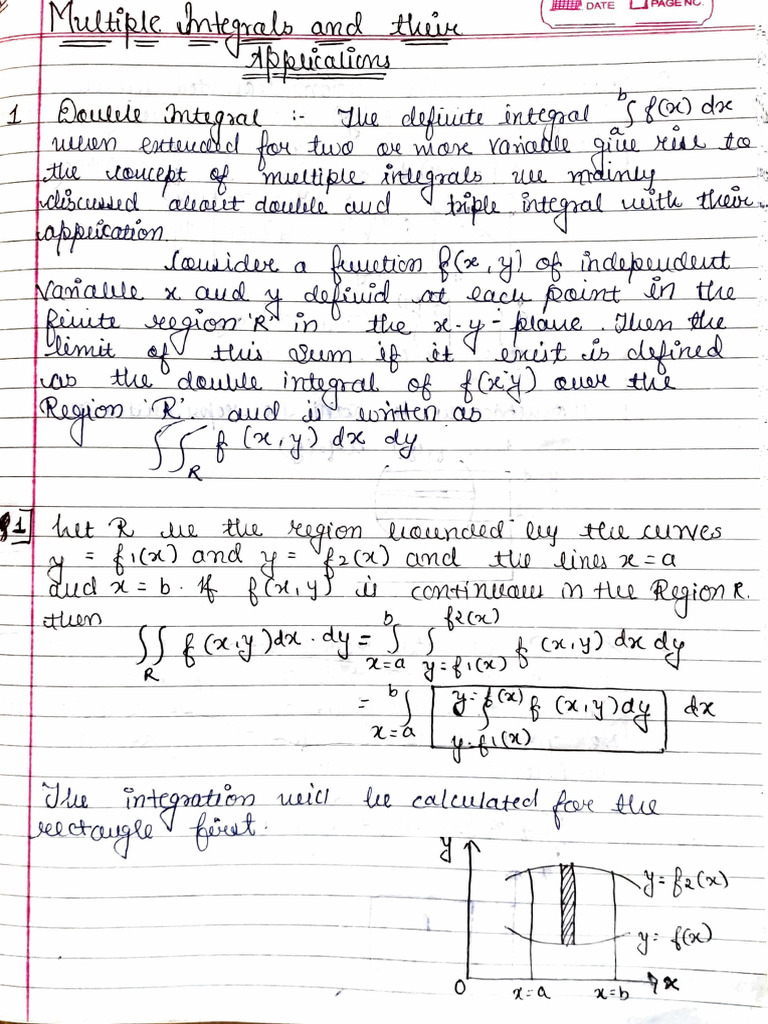 Multiple Integrals and their
Applications
DATE PAGE NO.
1 Double Integral :- The definite integral ∫ₐᵇ f(x) dx
when extended for two or more variable give rise to
the concept of multiple integrals we mainly
discussed about double and triple integral with their
application.
Consider a function f(x,y) of independent
variable x and y defined at each point in the
finite region 'R' in the x-y-plane. Then the
limit of this sum if it exist is defined
as the double integral of f(x y) over the
Region 'R' and is written as
∫∫_R f(x,y) dx dy
1 Let R be the region bounded by the curves
y = f1(x) and y = f2(x) and the lines x=a
and x=b. If f(x,y) is continuous in the Region R.
then
∫∫_R f(x,y)dx.dy = ∫_{x=a}^{b} ∫_{y=f1(x)}^{f2(x)} f(x,y) dx dy
= ∫_{x=a}^{b} [∫_{y=f1(x)}^{y=f(x)} f(x,y)dy] dx
The integration will be calculated for the
rectangle first.
y
y=f2(x)
y=f(x)
0 x=a x=b x